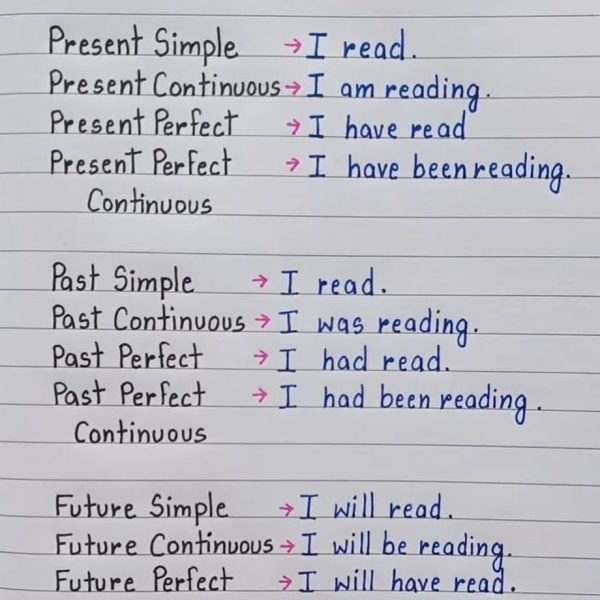 Present Simple → I read.
Present Continuous → I am reading.
Present Perfect → I have read
Present Perfect → I have been reading.
Continuous
Past Simple → I read.
Past Continuous → I was reading.
Past Perfect → I had read.
Past Perfect → I had been reading.
Continuous
Future Simple → I will read.
Future Continuous → I will be reading.
Future Perfect → I will have read.